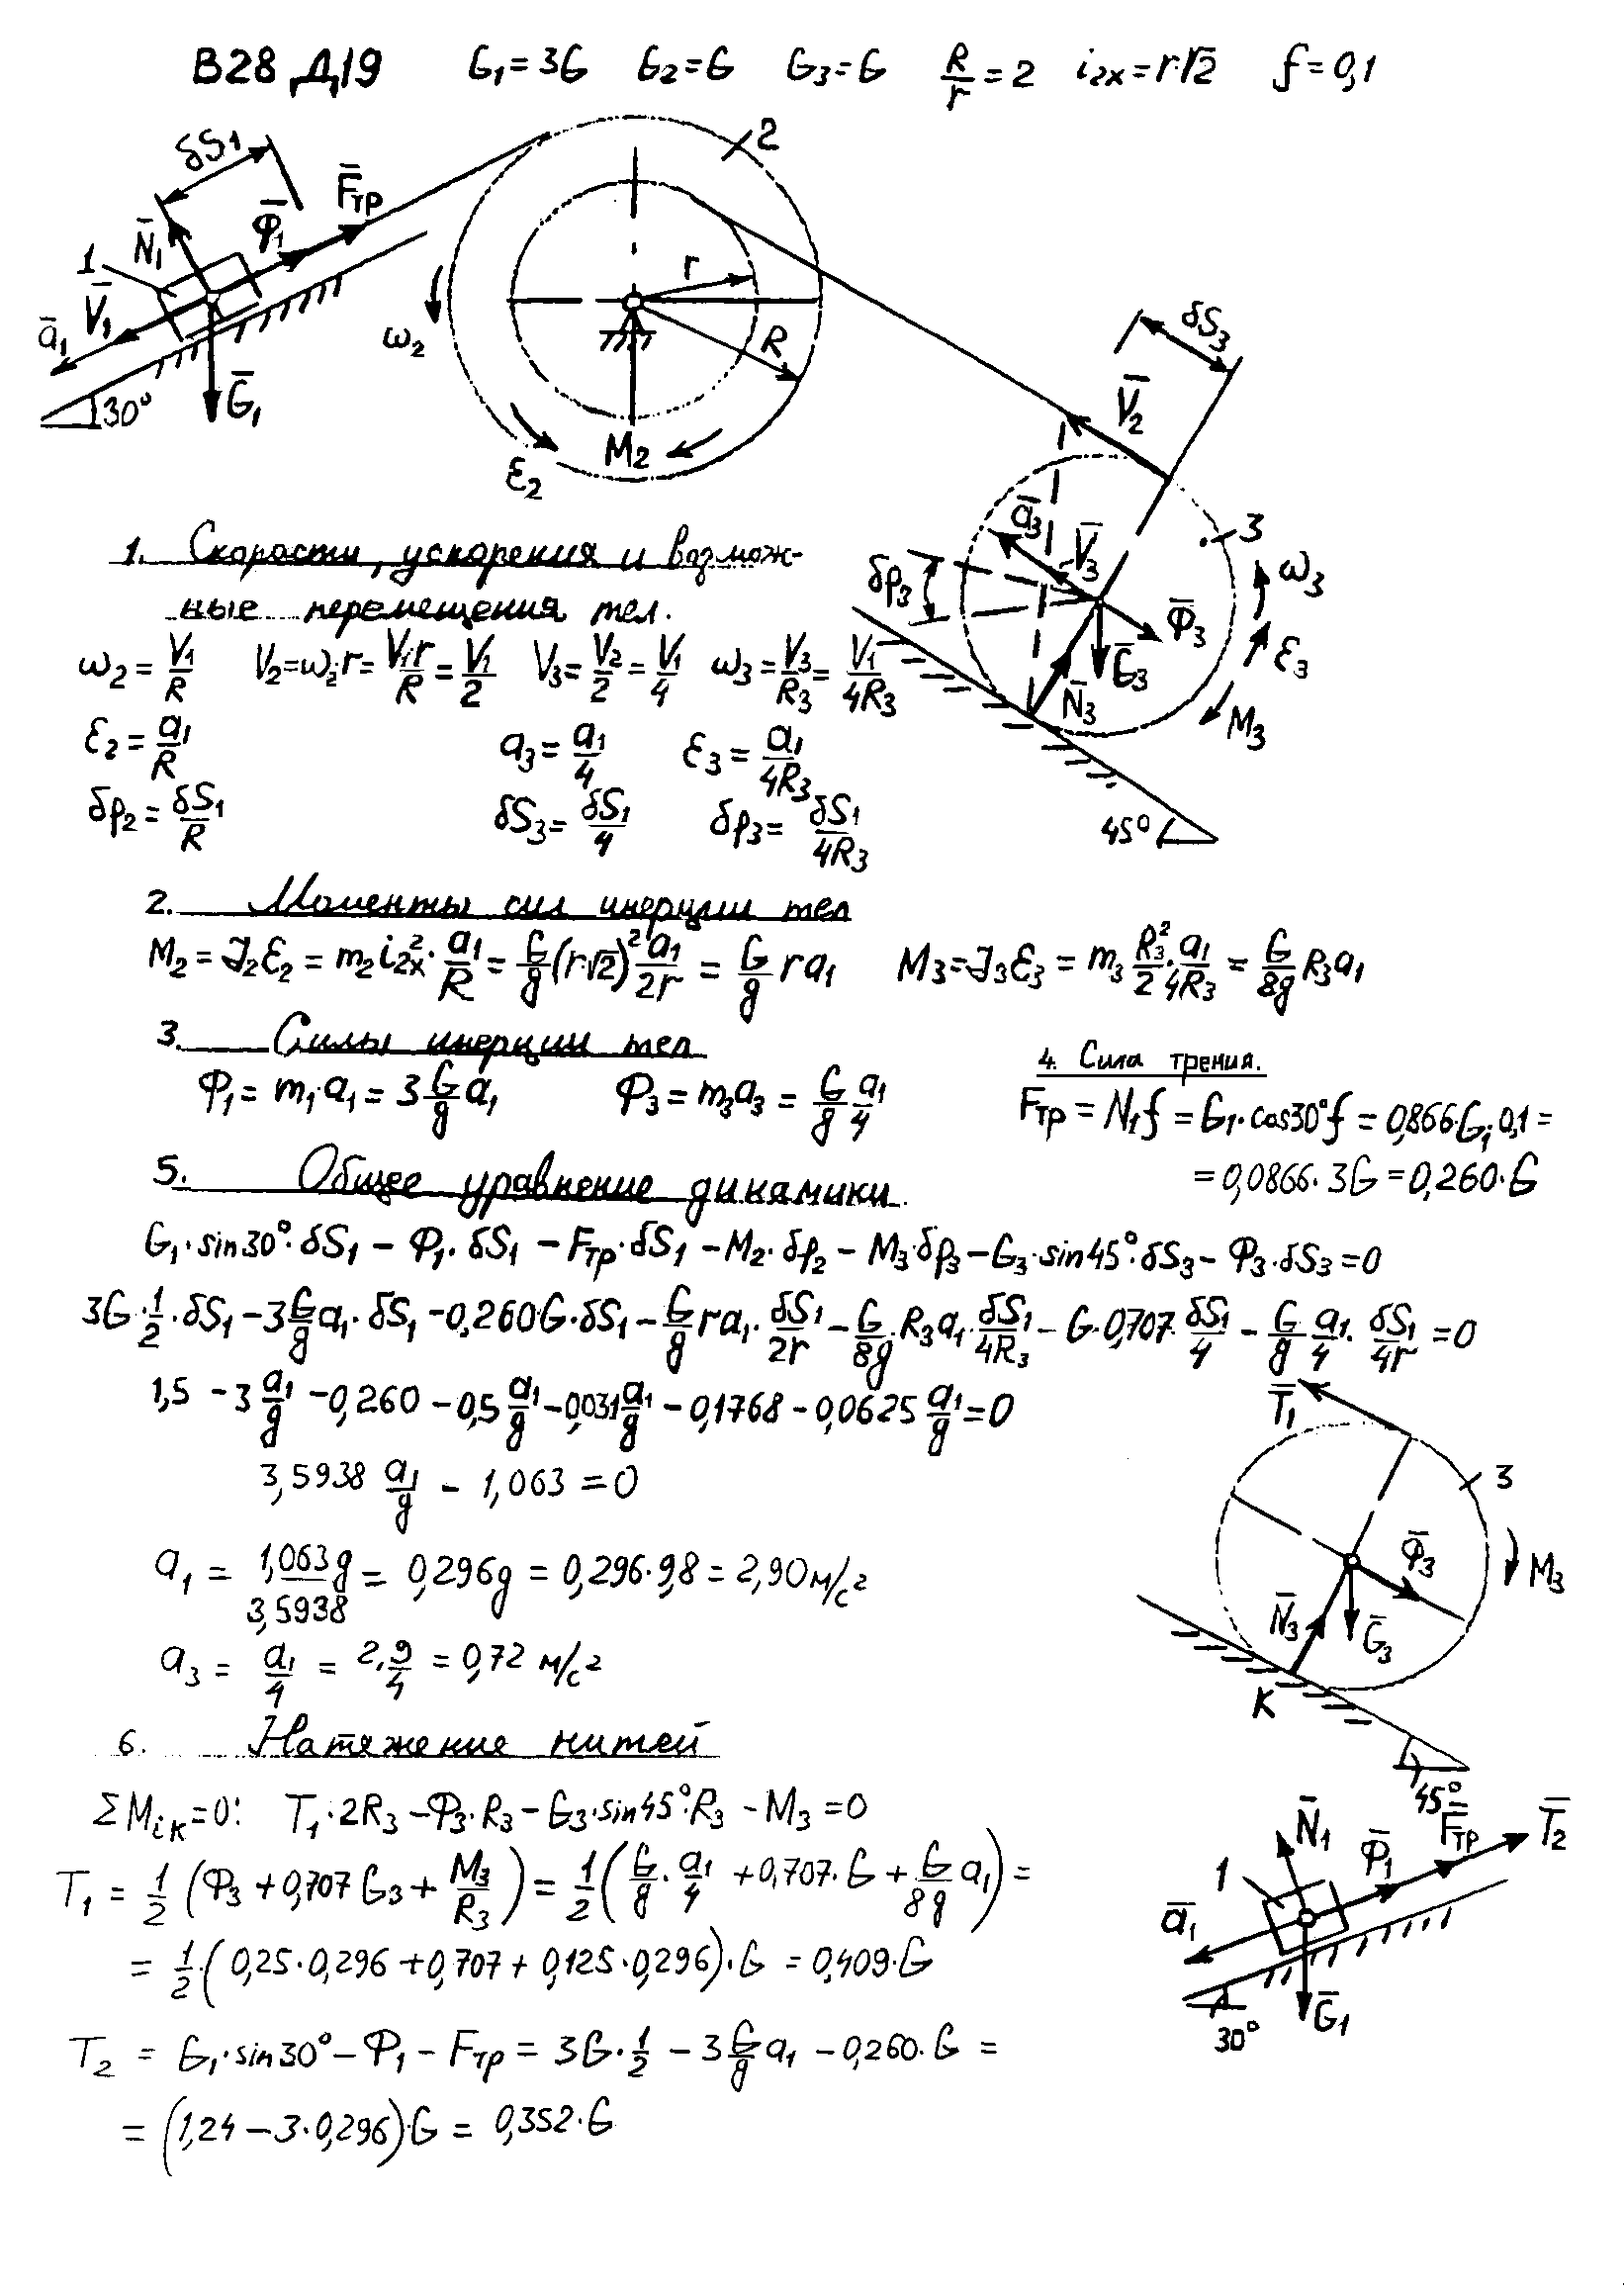 В28 Д19 G₁=3G G₂=G G₃=G R/r=2 i₂ₓ=r√2 f=0,1
δS₁
F̄тр
Φ̄₁
N̄₁
1
V̄₁
ā₁
Ḡ₁
30°
2
r
R
ω₂
ε₂
M₂
δS₃
V̄₂
ā₃
V̄₃
3
ω₃
δφ₃
Φ̄₃
ε₃
Ḡ₃
N̄₃
M₃
45°
1. Скорости, ускорения и возмож-
ные перемещения тел.
ω₂ = V₁/R V₂=ω₂·r = V₁r/R = V₁/2 V₃ = V₂/2 = V₁/4 ω₃ = V₃/R₃ = V₁/4R₃
ε₂ = a₁/R a₃ = a₁/4 ε₃ = a₁/4R₃
δφ₂ = δS₁/R δS₃ = δS₁/4 δφ₃ = δS₁/4R₃
2. Моменты сил инерции тел
M₂ = J₂ε₂ = m₂i₂ₓ²·a₁/R = G/g(r·√2)²a₁/2r = G/g ra₁ M₃=J₃ε₃ = m₃ R₃²/2·a₁/4R₃ = G/8g R₃a₁
3. Силы инерции тел
Φ₁ = m₁·a₁ = 3 G/g a₁ Φ₃ = m₃a₃ = G/g a₁/4
4. Сила трения.
Fтр = N₁f = G₁·cos30°f = 0,866·G₁·0,1 =
= 0,0866·3G = 0,260·G
5. Общее уравнение динамики.
G₁·sin30°·δS₁ – Φ₁·δS₁ – Fтр·δS₁ – M₂·δφ₂ – M₃·δφ₃ – G₃·sin45°·δS₃ – Φ₃·δS₃ = 0
3G·1/2·δS₁ – 3G/g a₁·δS₁ – 0,260·G·δS₁ – G/g ra₁·δS₁/2r – G/8g·R₃a₁·δS₁/4R₃ – G·0,707·δS₁/4 – G/g·a₁/4·δS₁/4r = 0
1,5 – 3 a₁/g – 0,260 – 0,5 a₁/g – 0,031 a₁/g – 0,1768 – 0,0625 a₁/g = 0
3,5938 a₁/g – 1,063 = 0
a₁ = 1,063g/3,5938 = 0,296g = 0,296·9,8 = 2,90 м/с²
a₃ = a₁/4 = 2,9/4 = 0,72 м/с²
T̄₁
3
Φ̄₃
M₃
N̄₃
Ḡ₃
K
45°
6. Натяжение нитей
ΣMᵢₖ=0: T₁·2R₃ – Φ₃·R₃ – G₃·sin45°·R₃ – M₃ = 0
T₁ = 1/2 (Φ₃ + 0,707 G₃ + M₃/R₃) = 1/2 (G/g·a₁/4 + 0,707·G + G/8g a₁) =
= 1/2·(0,25·0,296 + 0,707 + 0,125·0,296)·G = 0,409·G
T₂ = G₁·sin30° – Φ₁ – Fтр = 3G·1/2 – 3 G/g a₁ – 0,260·G =
= (1,24 – 3·0,296)·G = 0,352·G
N̄₁
Φ̄₁
F̄тр
T̄₂
1
ā₁
Ḡ₁
30°